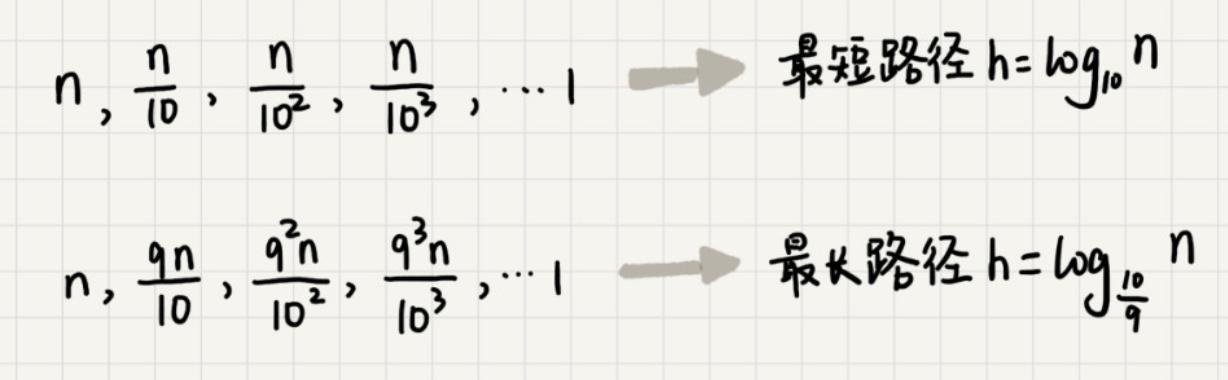 n, n/10, n/10², n/10³, ... 1 最短路径 h = log₁₀ n
n, 9n/10, 9²n/10², 9³n/10³, ... 1 最长路径 h = log_{10/9} n